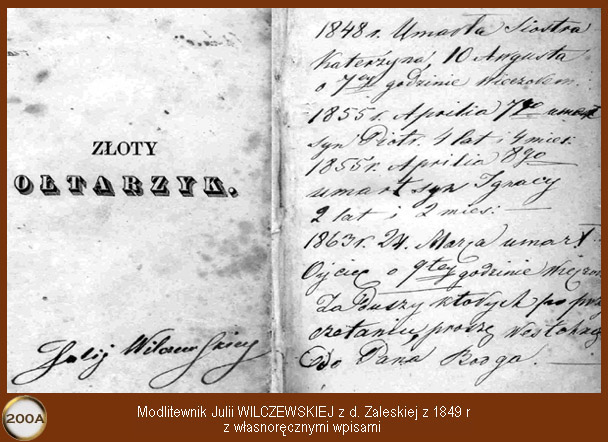 ZŁOTY
OŁTARZYK.
Julij Wilczewskiey
1848 r. Umarła Siostra
Katerzyna, 10 Augusta
o 7ey godzinie wieczorem.
1855 r. Aprilia 7go umarł
syn Piotr. 4 lat i 4 mies:
1855 r. Aprilia 8go
umarł syn Ignacy
2 lat i 2 mies:
1863 r. 24. Marca umarł
Ojciec o 9tey godzinie
Za Duszy których po
czytaniu, proszę
do Pana Boga.
200A
Modlitewnik Julii WILCZEWSKIEJ z d. Zaleskiej z 1849 r
z własnoręcznymi wpisami